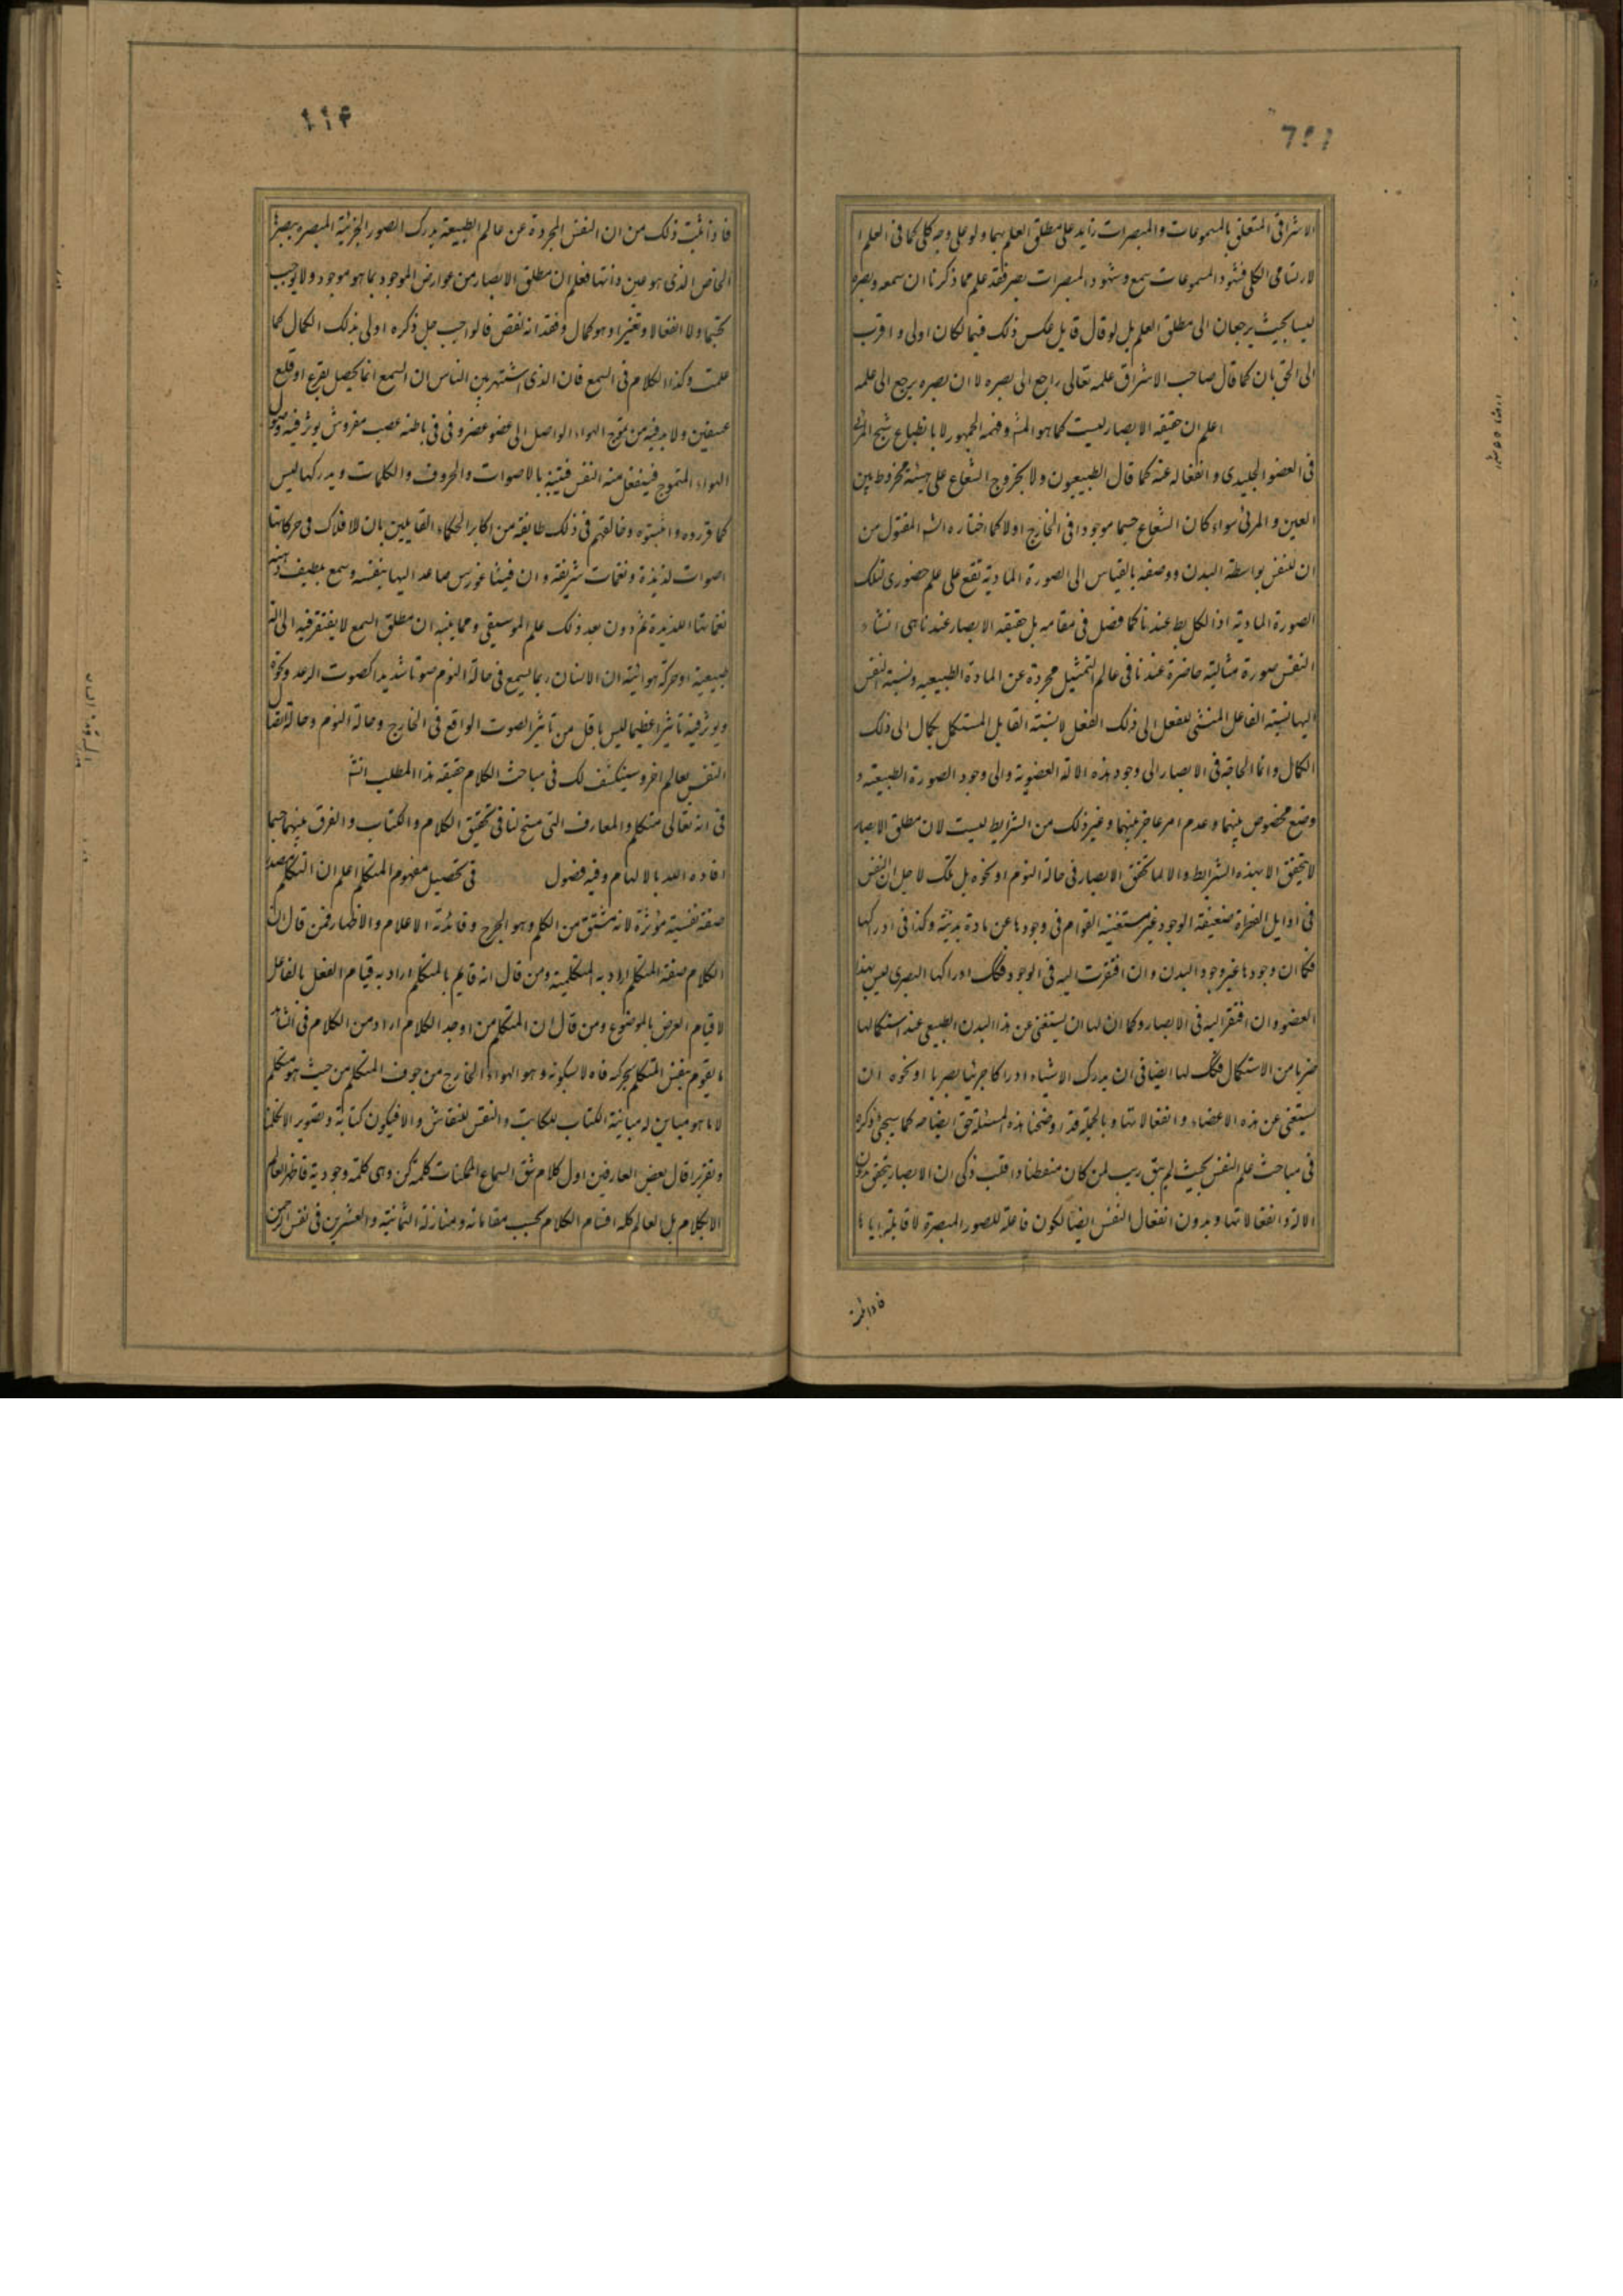 الاشراقی المتعلق بالمسموعات والمبصرات زاید علی مطلق العلم بهما ولو علی وجه کلی کما فی العلم ا
لارتسامی الکلی فشهود المسموعات سمع وشهود المبصرات بصر فقد علم مما ذکرنا ان سمعه وبصره
لیسا بحیث یرجعان الی مطلق العلم بل لو قال قایل عکس ذلک فیهما لکان اولی و اقرب
الی الحق بان کما قال صاحب الاشراق علمه تعالی راجع الی بصره لا ان بصره یرجع الی علمه
اعلم ان حقیقه الابصار لیست کما هو المشهـ وفهمه الجمهور لا بانطباع شبح المرئی
فی العضو الجلیدی و انفعاله عنه کما قال الطبیعیون ولا بخروج الشعاع علی هیئة مخروط بین
العین و المرئی سواء کان الشعاع جسما موجودا فی الخارج اولا کما اختاره الشـ المقتول من
ان للنفس بواسطة البدن ووضعه بالقیاس الی الصورة المادیة تقع علی علم حضوری لتلک
الصورة المادیة اذ الکل بط عندنا کما فصل فی مقامه بل حقیقه الابصار عندنا هی انشاء
النفس صورة مثالیة حاضرة عندنا فی عالم التمثیل مجردة عن المادة الطبیعیه ونسبة النفس
الیها نسبة الفاعل المنشی للفعل الی ذلک الفعل لا نسبة القابل المستکمل بکمال الی ذلک
الکمال وانما الحاجة فی الابصار الی وجود هذه الالة العضویة والی وجود الصورة الطبیعیة و
وضع مخصوص بینهما وعدم امر حاجز بینهما وغیر ذلک من الشرایط لیست لان مطلق الابصار
لا یتحقق الا بهذه الشرایط والا لما تحقق الابصار فی حالة النوم او نحوه بل تلک لاجل ان النفس
فی اوایل الفطرة ضعیفة الوجود غیر مستغنیه القوام فی وجودها عن مادة بدنیة وکذا فی ادراکها
فکما ان وجودها غیر وجود البدن وان افتقرت الیه فی الوجود فکک ادراکها البصری لیس بهذا
العضو وان افتقر الیه فی الابصار وکما ان لها ان یستغنی عن هذا البدن الطبیعی عند استکمالها
ضربا من الاستکمال فکک لها ایضا فی ان یدرک الاشیاء ادراکا جزئیا بصریا او نحوه ان
یستغنی عن هذه الاعضاء و انفعالاتها وبالجملة قد اوضحنا هذه المسئلة حق ایضاحه کما سیجئ ذکره
فی مباحث علم النفس بحیث لم یبق ریب لمن کان منفطنا واقلب ذکی ان الابصار یتحقق بدون
الالة و انفعالاتها و بدون انفعال النفس ایضا لکون فاعلة للصور المبصرة لا قابلة ایاها
فاذا ثبت
فاذا ثبت ذلک من ان النفس المجردة عن عالم الطبیعة یدرک الصور الجزئیة المبصره ببصرها
الخاص الذی هو عین ذاتها فعلم ان مطلق الابصار من عوارض الموجود بما هو موجود ولا یوجب
تجسما ولا انفعالا وتغیرا وهو کمال وفقدانه نقص فالواجب جل ذکره اولی بذلک الکمال کما
علمت وکذا الکلام فی السمع فان الذی اشتهر بین الناس ان السمع انما یحصل بقرع او قلع
عنیفین ولا بد فیه من تموج الهواء الواصل الی عضو غضروفی فی باطنه عصب مفروش یوثر فیه وصول
الهواء المتموج فینفعل منه النفس فیتنبه بالاصوات والحروف والکلمات ویدرکها لیس
کما قرروه و اثبتوه وخالفهم فی ذلک طایفة من اکابر الحکماء القایلین بان للافلاک فی حرکاتها
اصوات لذیذة ونغمات شریفة وان فیثاغورس صاعد الیها بنفسه وسمع بلطیف ذهنه
نغماتها اللذیذة ثم دون بعد ذلک علم الموسیقی ومما ینبه ان مطلق السمع لا یفتقر فیه الی الة
طبیعیة او حرکة هوائیة ان الانسان ربما یسمع فی حالة النوم صوتا شدیدا کصوت الرعد ونحوه
ویوثر فیه تاثیرا عظیما لیس باقل من تاثیر الصوت الواقع فی الخارج وحالة النوم وحالة اتصال
النفس بعالم اخر وسینکشف لک فی مباحث الکلام حقیقه هذا المطلب انشـ
فی انه تعالی متکلم والمعارف التی سنح لنا فی تحقیق الکلام والکتاب والفرق بینهما حسبما
افاده الله بالالهام وفیه فصول فی تحصیل مفهوم المتکلم اعلم ان التکلم مصدر
صفة نفسیة مؤثرة لانه مشتق من الکلم وهو الجرح وفایدته الاعلام والاظهار فمن قال ان
الکلام صفة المتکلم اراد به المتکلمیة ومن قال انه قایم بالمتکلم اراد به قیام الفعل بالفاعل
لا قیام العرض بالموضوع ومن قال ان المتکلم من اوجد الکلام اراد من الکلام فی الشاهد
ما یقوم بنفس المتکلم بحرکه فاه لا بسکونه وهو الهواء الخارج من جوف المتکلم من حیث هو متکلم
لا ما هو مباین له مباینة الکتاب للکاتب والنقش للنقاش والا فیکون کتابة وتصویرا لا تکلما
وتقریرا قال بعض العارفین اول کلام شق اسماع الممکنات کلمة کن وهی کلمة وجودیة فما ظهر العالم
الا بالکلام بل العالم کله اقسام الکلام بحسب مقاماته ومنازله الثمانیة والعشرین فی نفس الرحمن